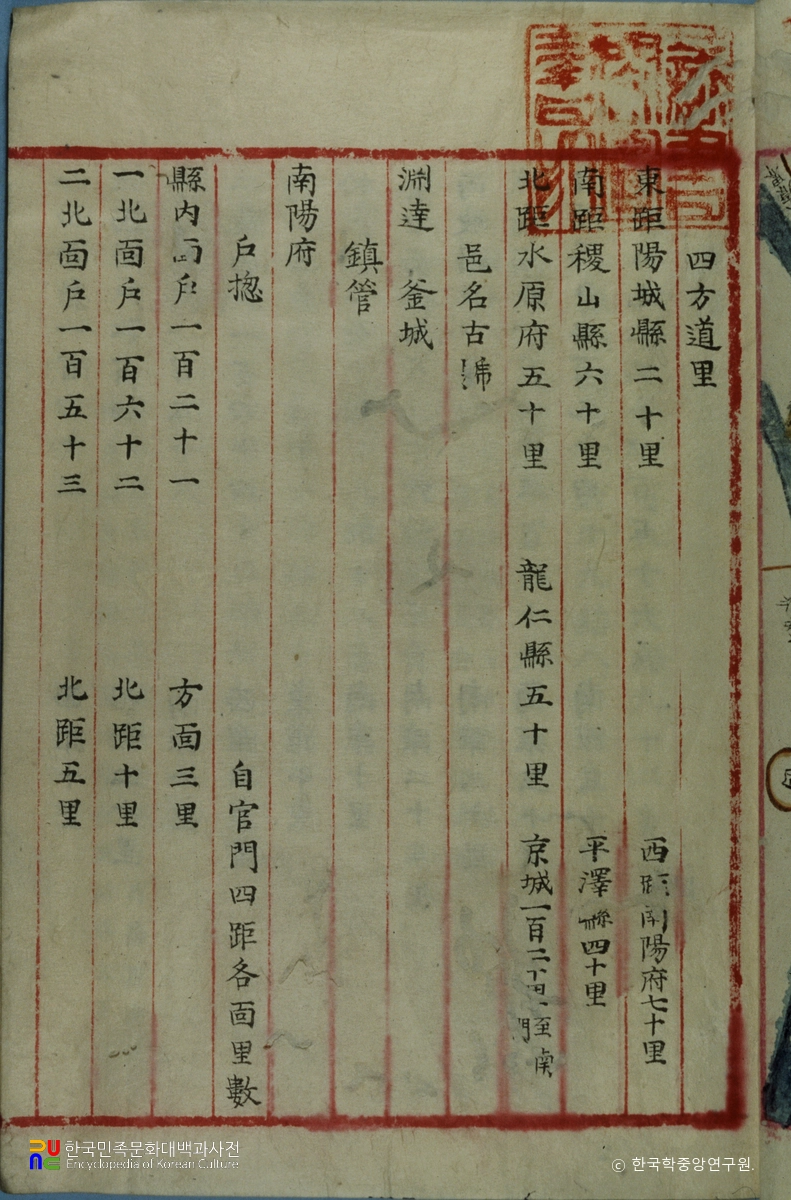 四方道里
東距陽城縣二十里 西距南陽府七十里
南距稷山縣六十里 平澤縣四十里
北距水原府五十里 龍仁縣五十里 京城一百二十里 至南門
邑名古號
淵達 釜城
鎮管
南陽府
戶摠 自官門四距各面里數
縣內面戶一百二十一 方面三里
一北面戶一百六十二 北距十里
二北面戶一百五十三 北距五里
한국민족문화대백과사전
Encyclopedia of Korean Culture
ⓒ 한국학중앙연구원